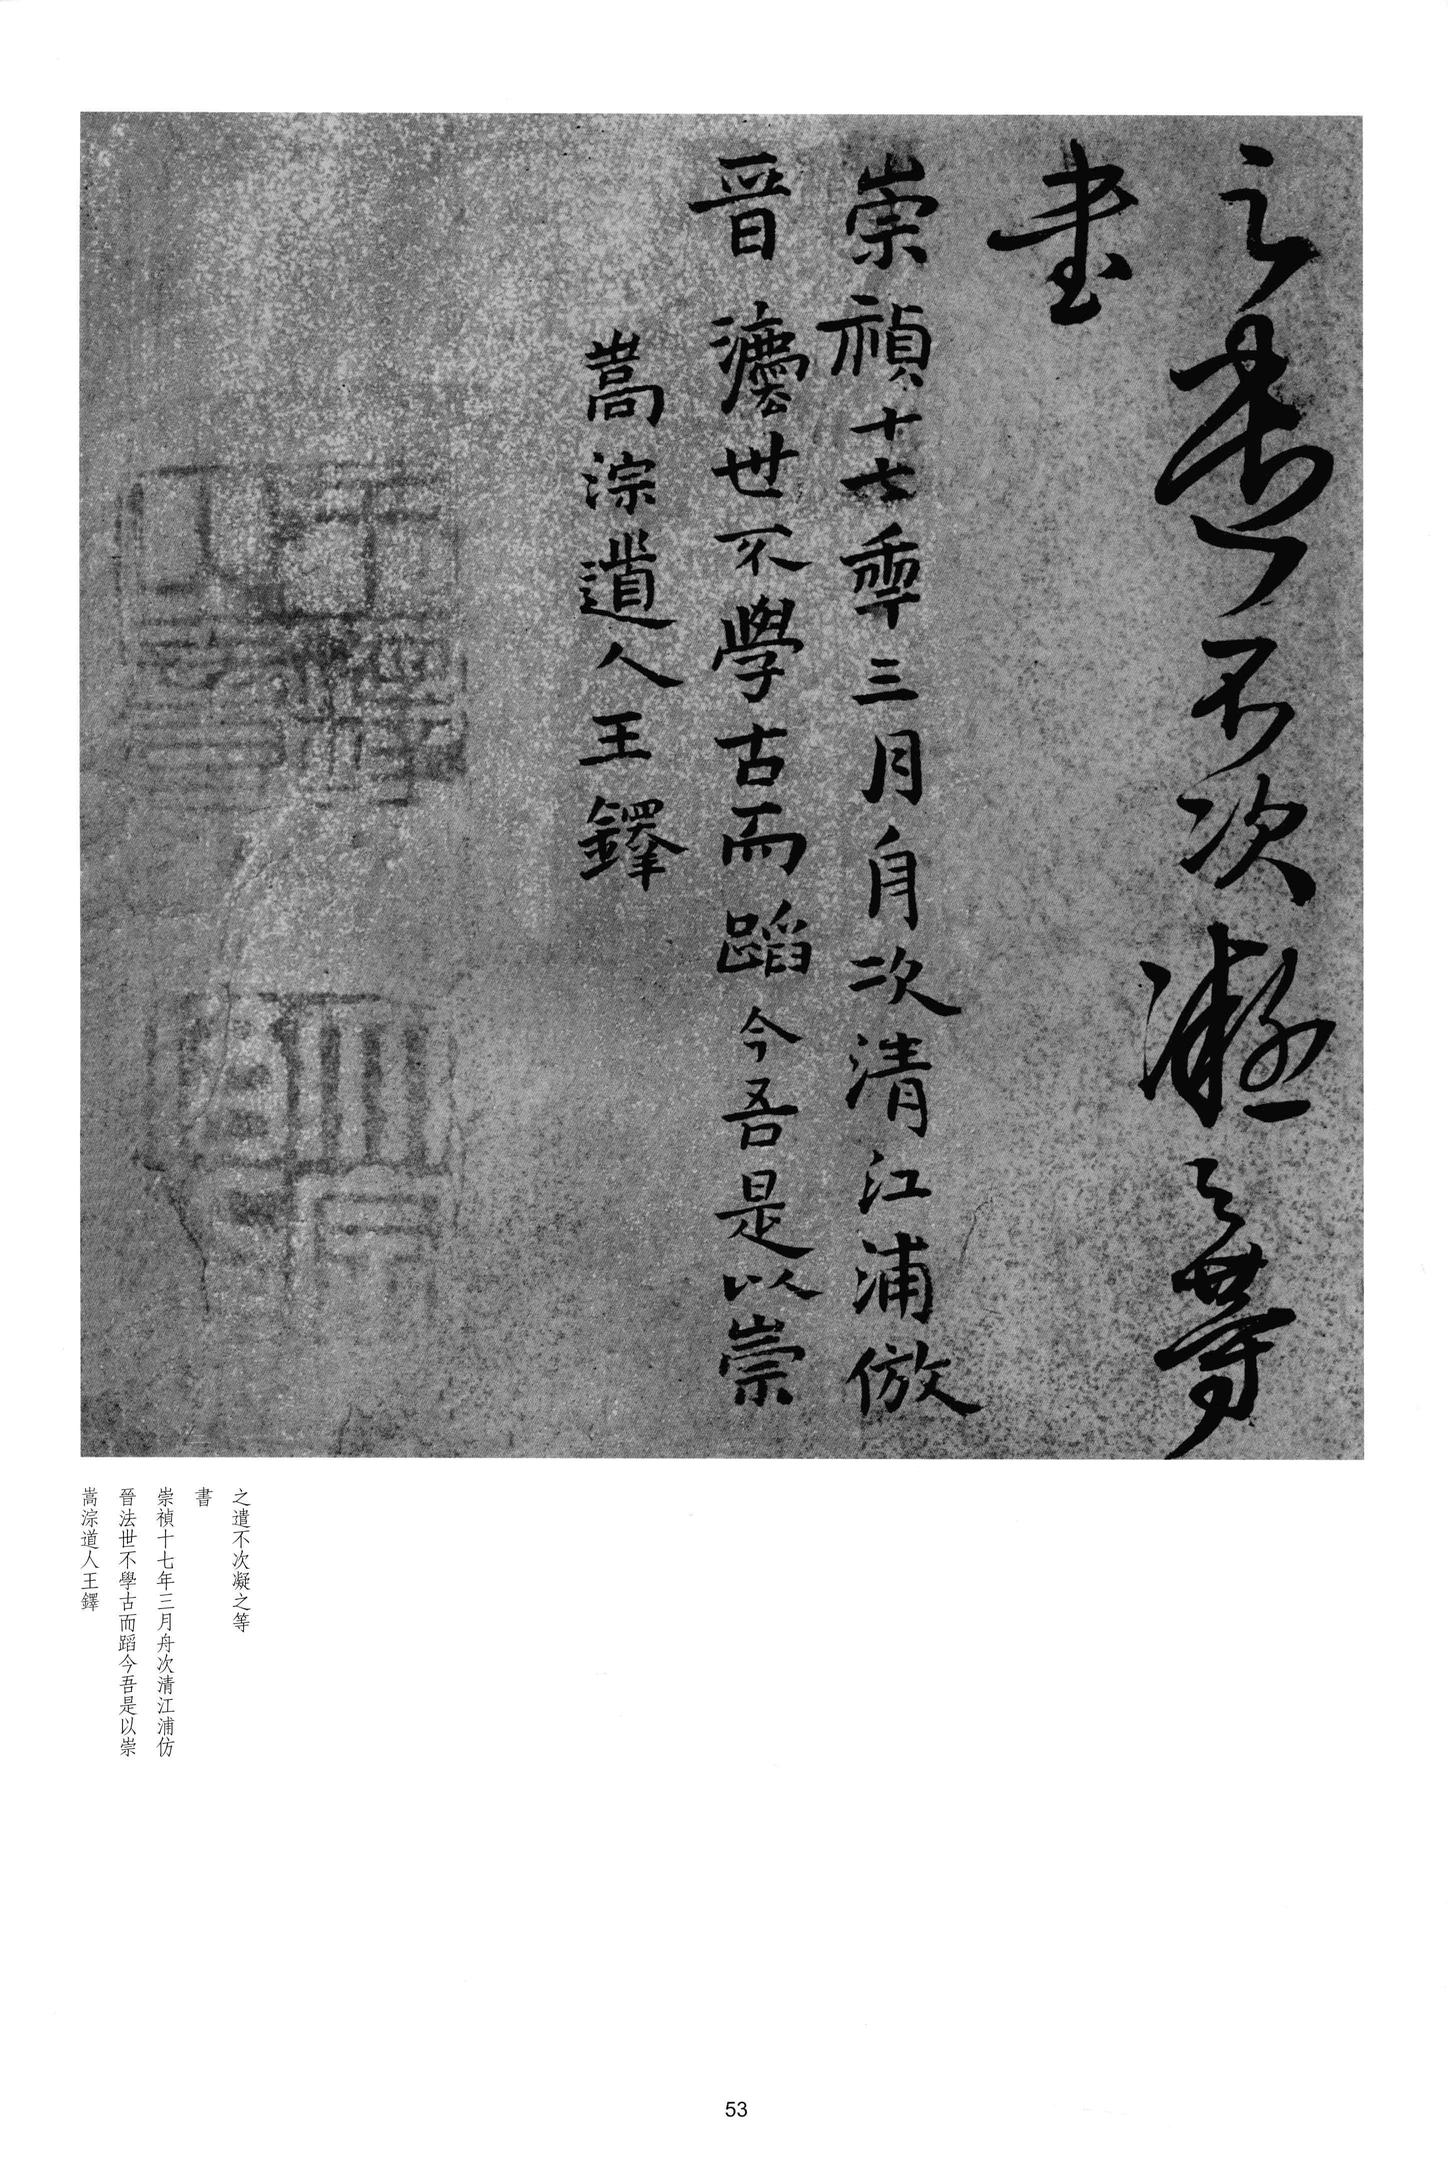 之遣不次凝之等
書
崇禎十七年三月舟次清江浦倣
晉灋世不學古而蹈今吾是以崇
嵩淙道人王鐸
之遣不次凝之等
書
崇禎十七年三月舟次清江浦仿
晉法世不學古而蹈今吾是以崇
嵩淙道人王鐸
53